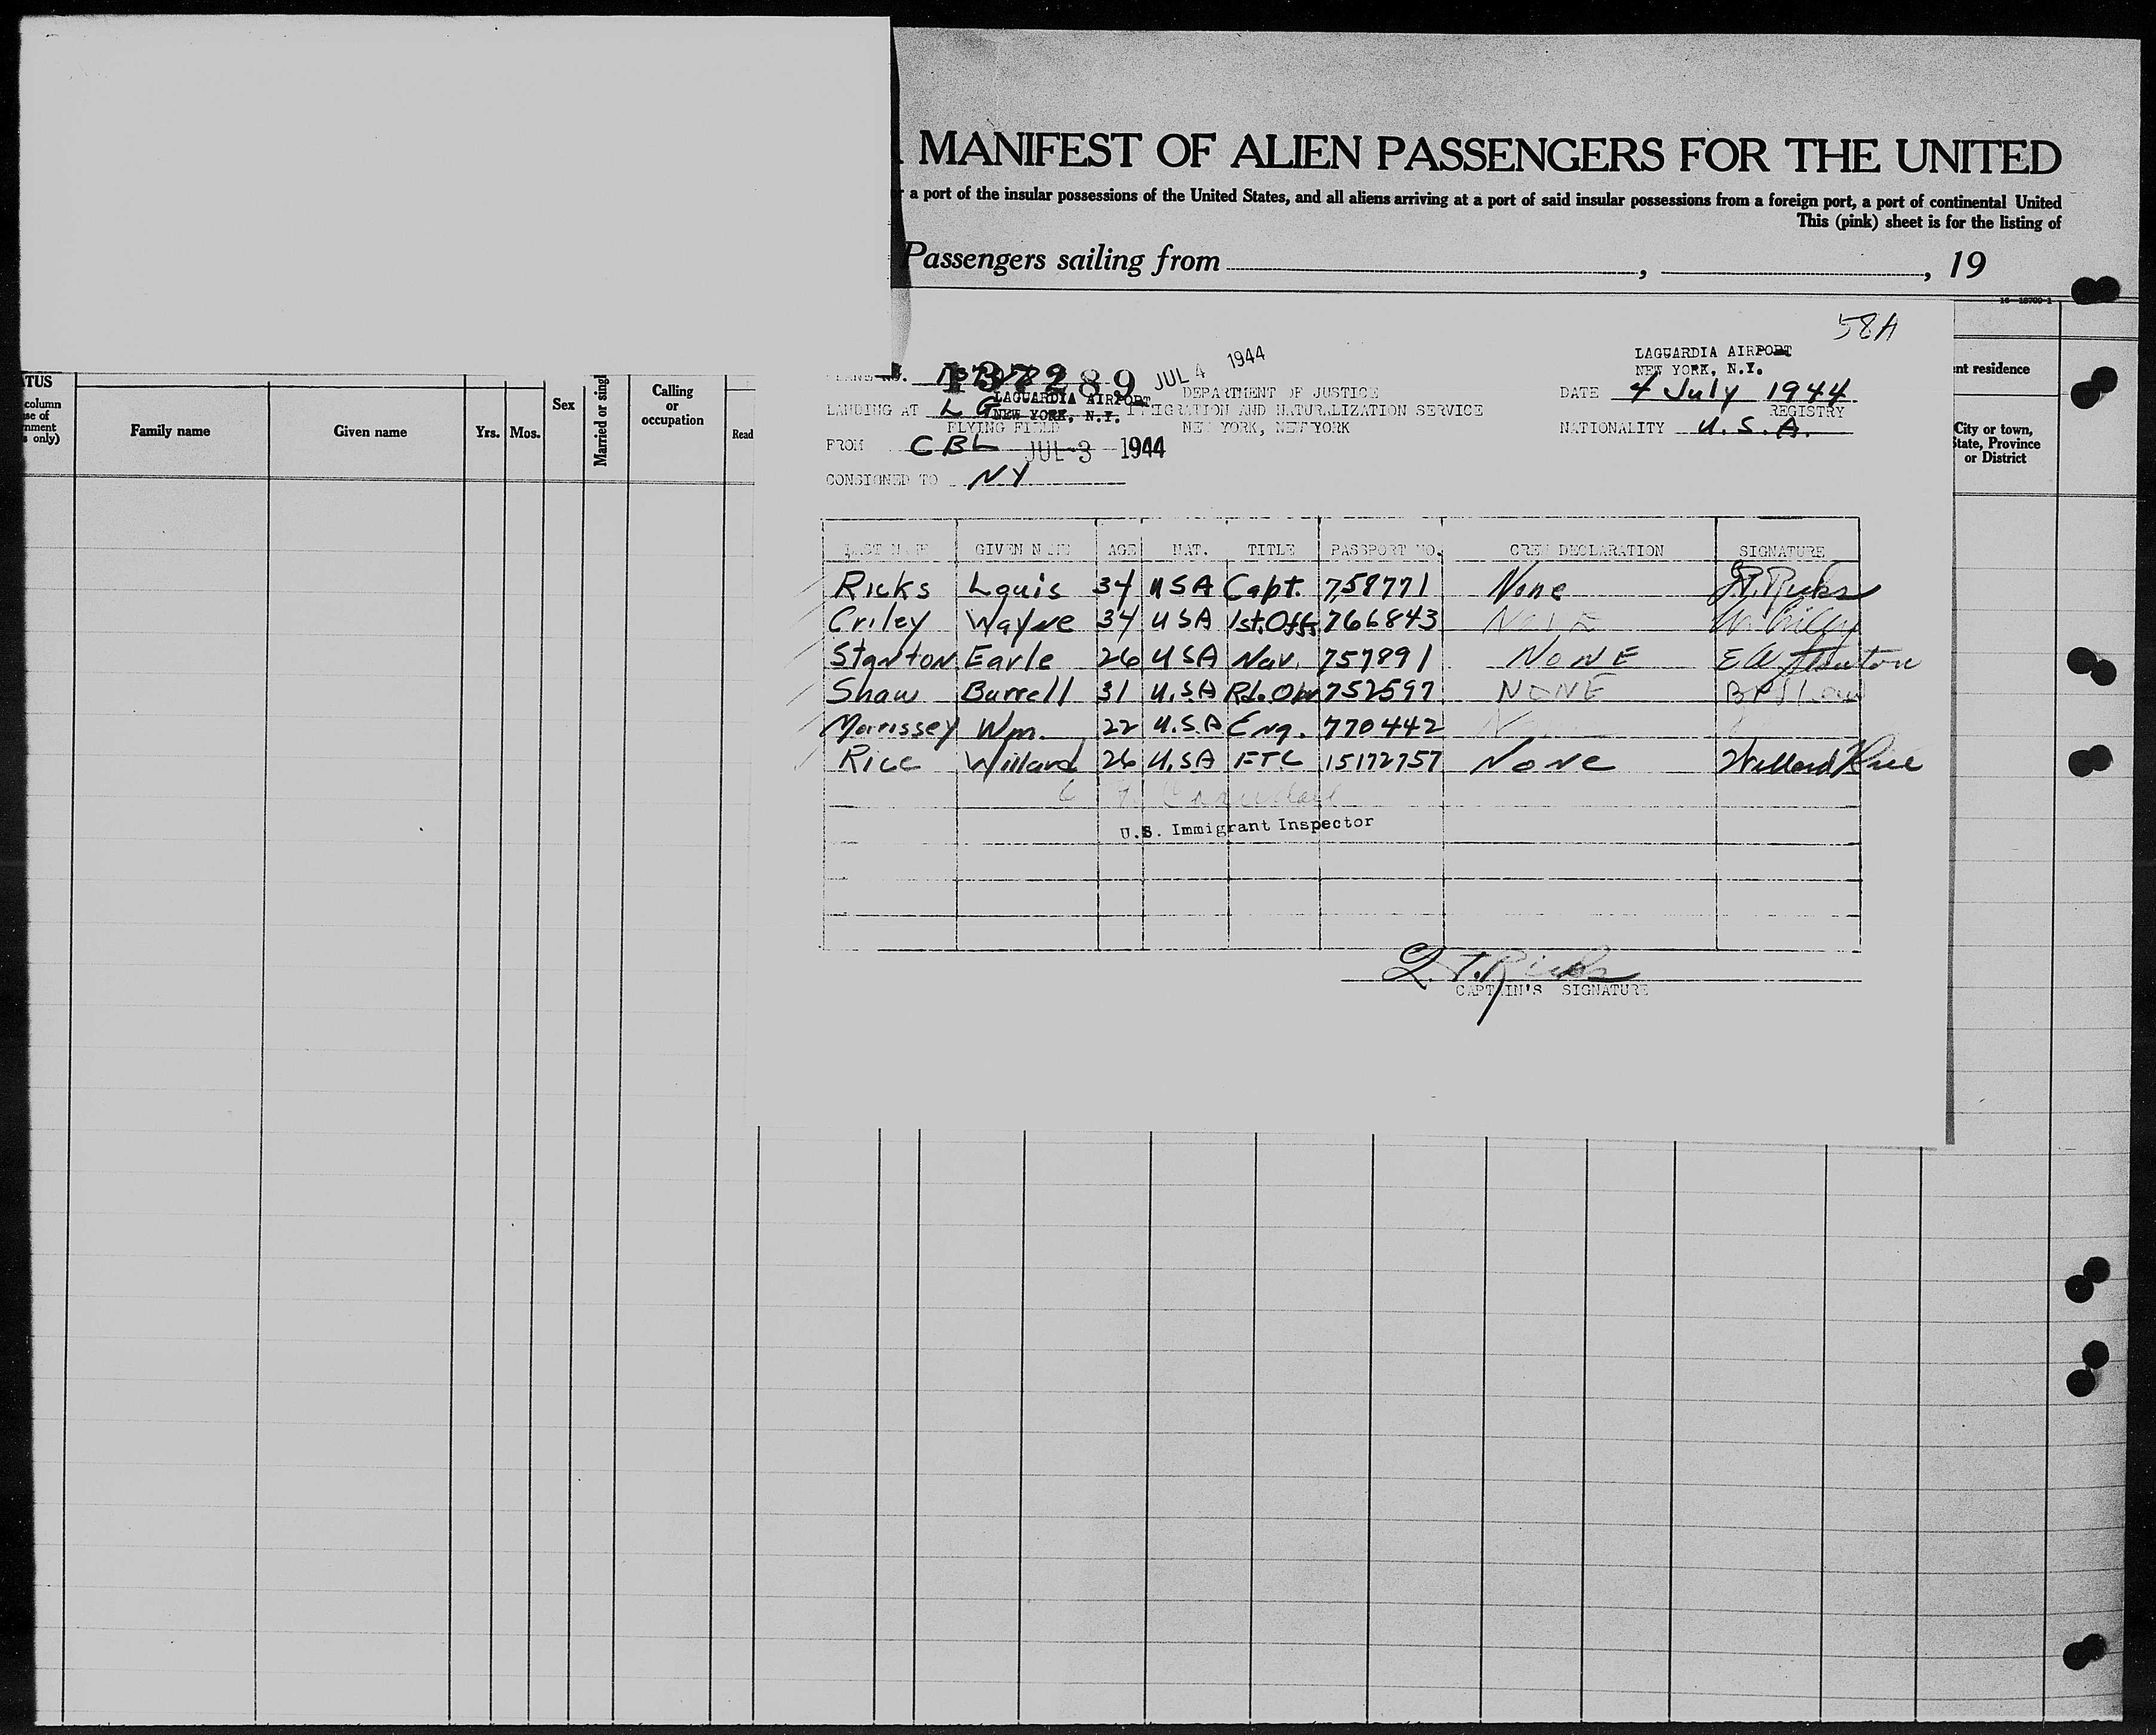 MANIFEST OF ALIEN PASSENGERS FOR THE UNITED
a port of the insular possessions of the United States, and all aliens arriving at a port of said insular possessions from a foreign port, a port of continental United
This (pink) sheet is for the listing of
Passengers sailing from , , 19
58A
LAGUARDIA AIRPORT
NEW YORK, N.Y.
JUL 4 1944
DEPARTMENT OF JUSTICE
DATE 4 July 1944
LANDING AT L G LAGUARDIA AIRPORT NEW YORK, N.Y. IMMIGRATION AND NATURALIZATION SERVICE
REGISTRY
FLYING FIELD NEW YORK, NEW YORK
NATIONALITY U.S.A.
FROM CBL JUL-3 1944
CONSIGNED TO NY
TUS
column
se of
nment
s only)
Family name
Given name
Yrs. Mos.
Sex
Married or singl
Calling
or
occupation
Read
nt residence
City or town,
State, Province
or District
LAST NAME GIVEN NAME AGE NAT. TITLE PASSPORT NO. CREW DECLARATION SIGNATURE
Ricks Louis 34 USA Capt. 758771 None
Criley Wayne 34 USA 1st.Off. 766843 None
Stanton Earle 26 USA Nav. 757891 NONE EW Stanton
Shaw Burrell 31 U.SA Rd.Opr 752597 NONE BP Shaw
Morrissey Wm. 22 U.S.A Eng. 770442
Rice Willard 26 U.SA FTC 15172757 None Willard Rice
U.S. Immigrant Inspector
L.T. Ricks
CAPTAIN'S SIGNATURE